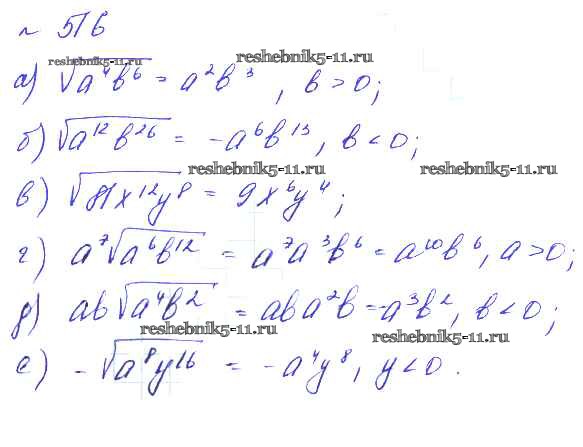 № 516
reshebnik5-11.ru
а) √a⁴b⁶ = a²b³, b > 0;
б) √a¹²b²⁶ = -a⁶b¹³, b < 0;
reshebnik5-11.ru reshebnik5-11.ru
в) √81x¹²y⁸ = 9x⁶y⁴;
г) a⁷√a⁶b¹² = a⁷a³b⁶ = a¹⁰b⁶, a > 0;
д) ab√a⁴b² = aba²b = -a³b², b < 0;
reshebnik5-11.ru reshebnik5-11.ru
е) -√a⁸y¹⁶ = -a⁴y⁸, y < 0.